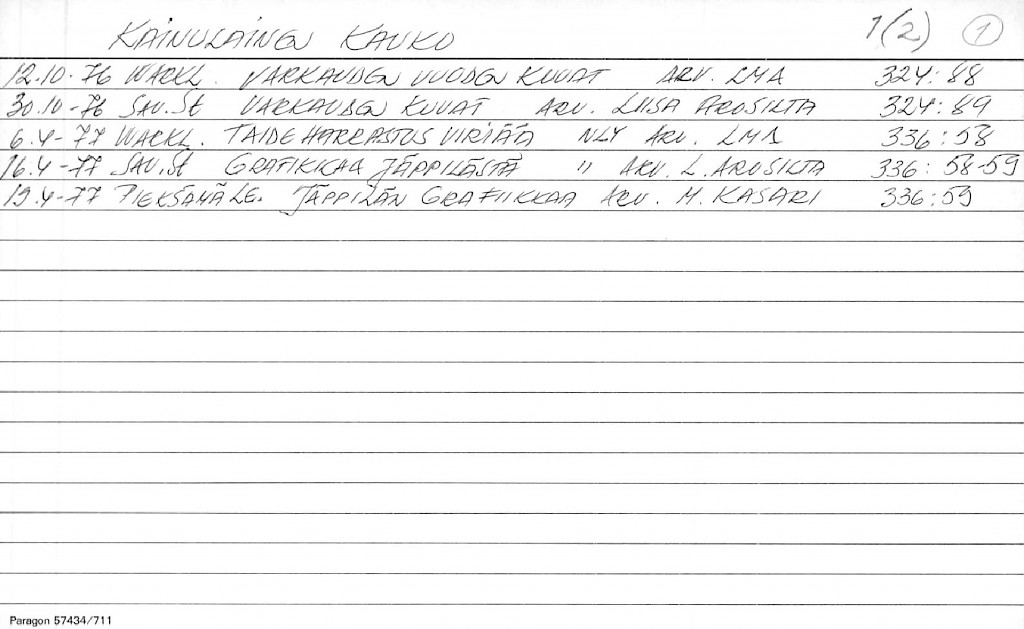 KAINULAINEN KAUKO 1(2) 1
12.10.-76 WARKL. VARKAUDEN VUODEN KUVAT ARV. LMA 324:88
30.10-76 SAV.St VARKAUDEN KUVAT ARV. LIISA AROSILTA 324:89
6.4-77 WARKL. TAIDEHARRASTUS VIRIÄÄ NLY ARV. LMA 336:58
16.4-77 SAV.St GRAFIKKAA JÄPPILÄSTÄ " ARV. L. AROSILTA 336:58-59
19.4-77 PIEKSÄMÄ LE. JÄPPILÄN GRAFIIKKAA ARV. M. KASARI 336:59
Paragon 57434/711